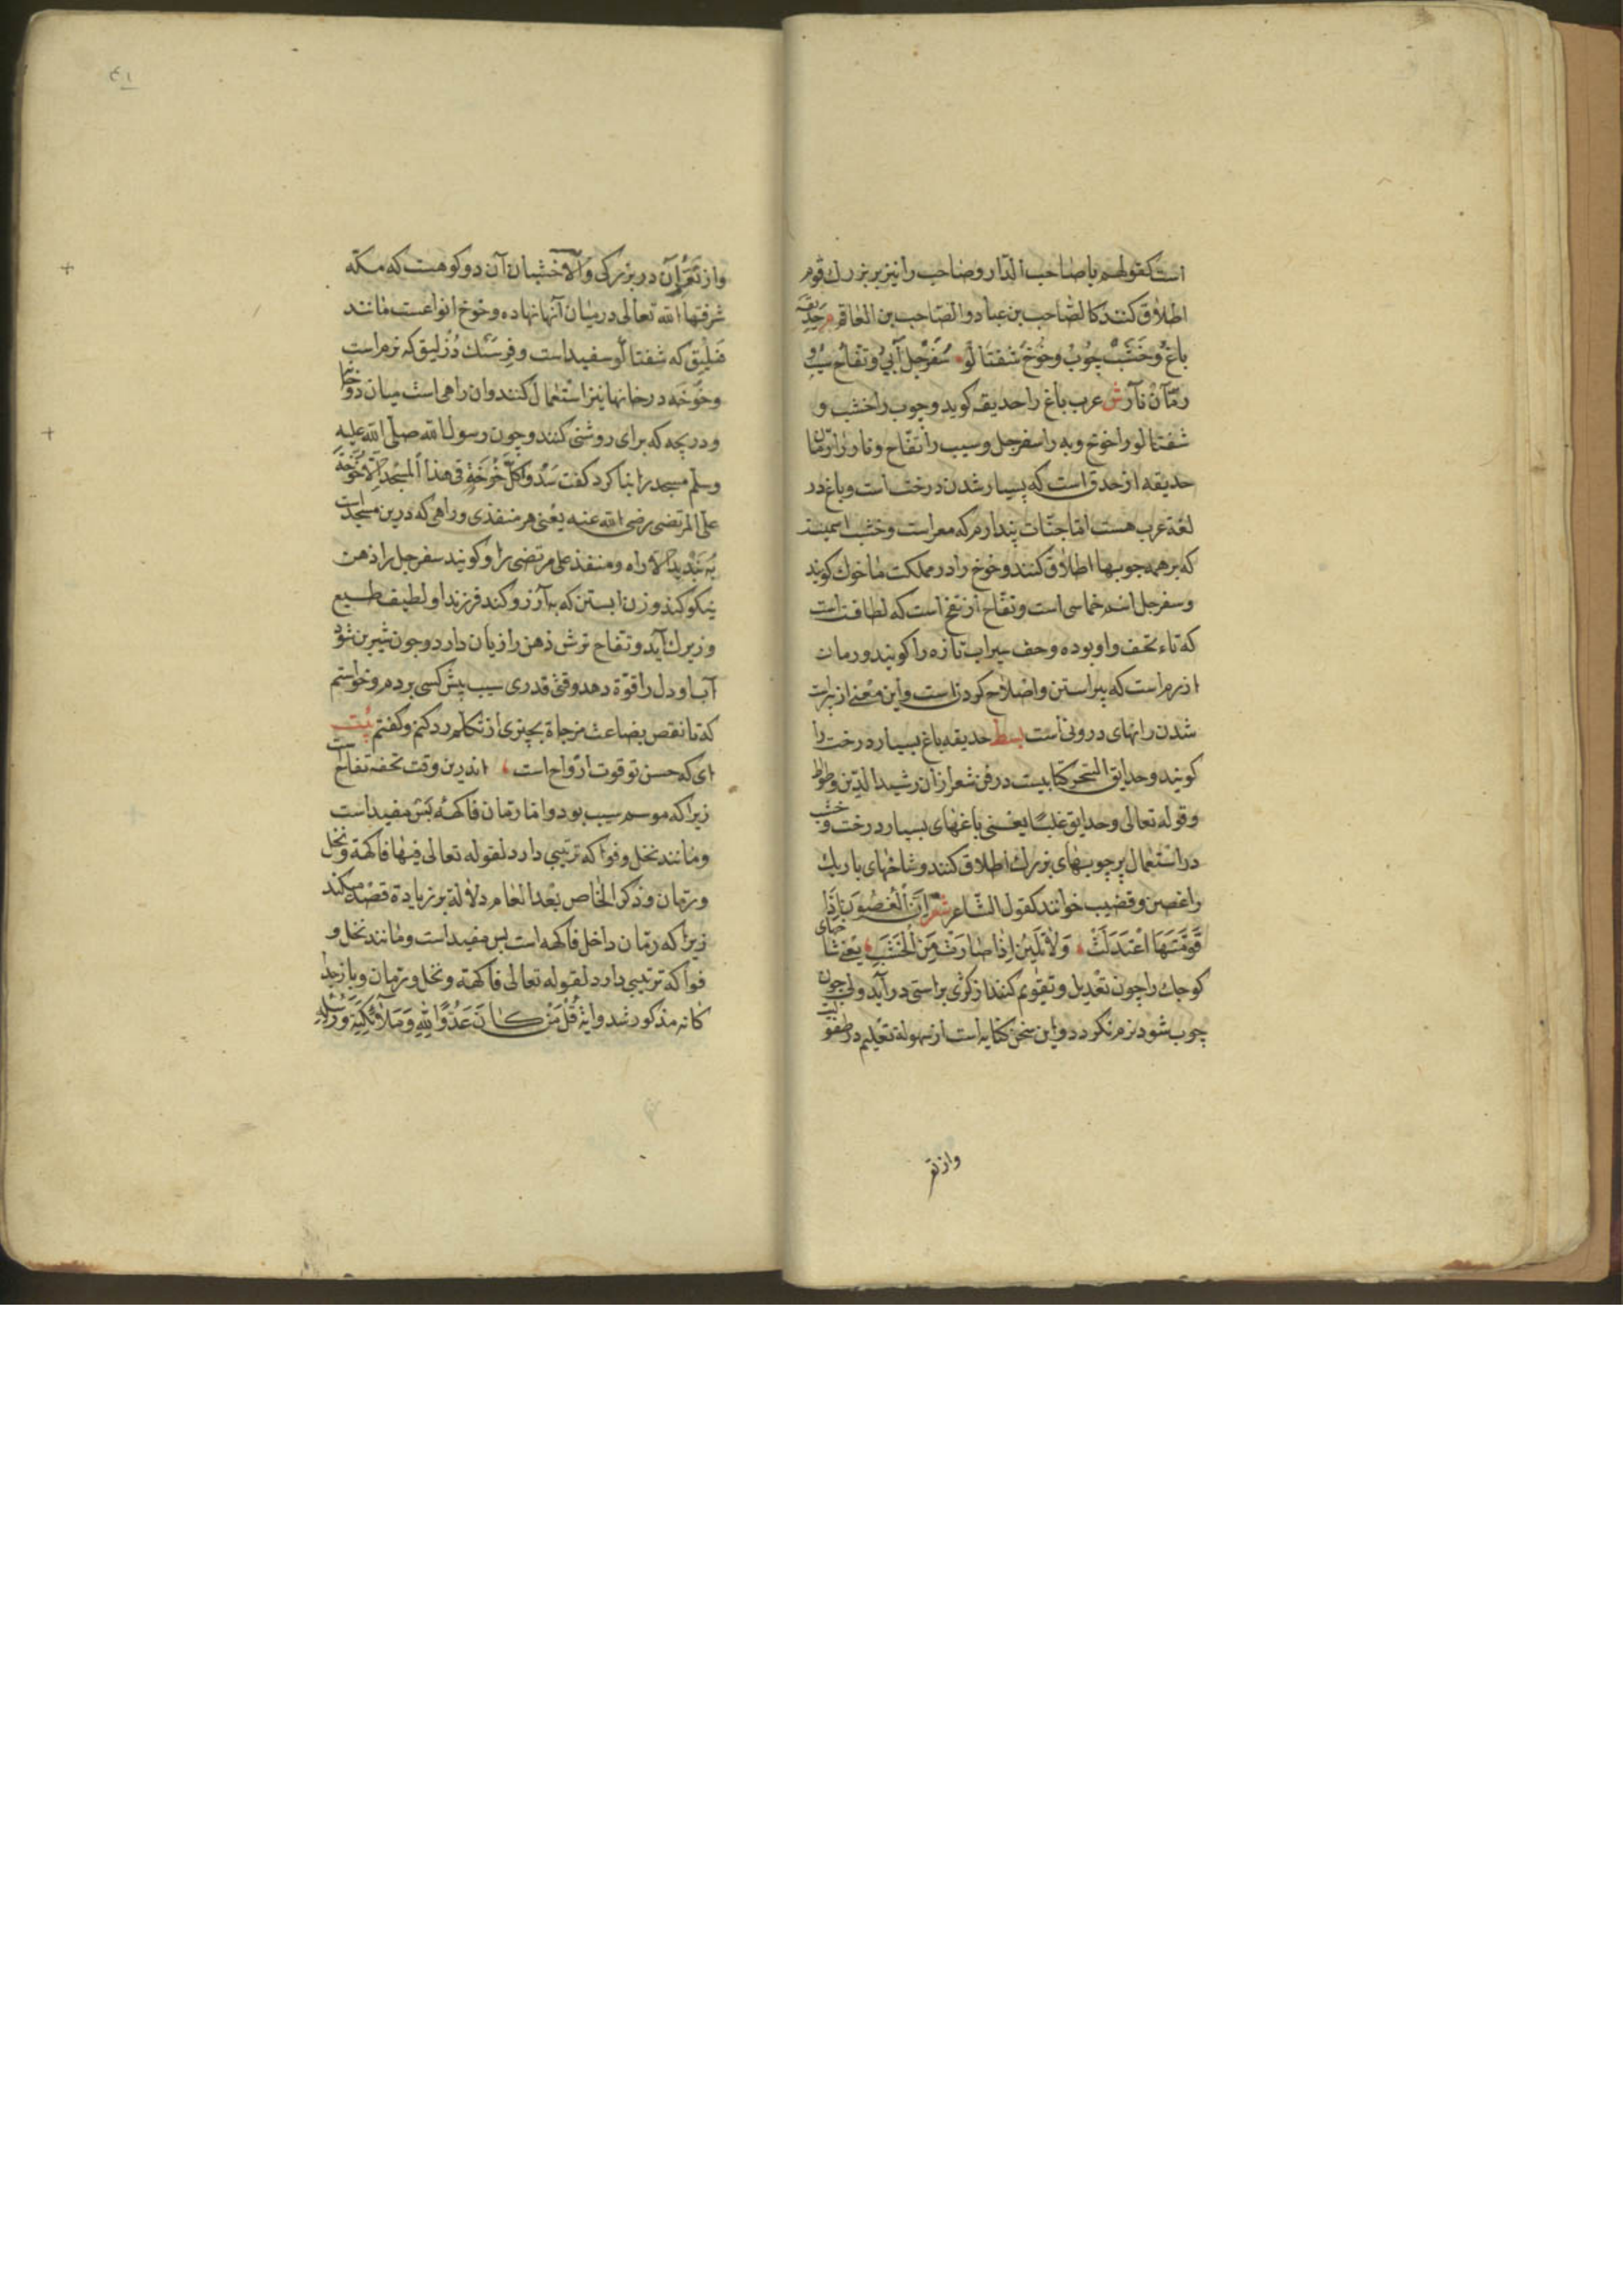 است کقولهم یا صاحب الدار و صاحب را نیز بر بزرك قوم
اطلاق کنند کالصاحب بن عباد و الصاحب بن العاقم م حدیقه
باغ و خشب چوب و خوخ شفتالو سفرجل آبی و تفاح سیب و
رمان نار ش عرب باغ را حدیقه کوید و چوب را خشب و
شفتالو را خوخ و به را سفرجل و سیب را تفاح و نار را رمان
حدیقه از حدق است که بسیار شدن درخت است و باغ در
لغة عرب هست اما جنات پندارم که معراست و خشب اسمیند
که بر همه چوبها اطلاق کنند و خوخ را در مملکت ما خوك کویند
و سفرجل اسم خماسی است و تفاح از تفخ است که لطافت است
که تاء تحف واو بوده و حف سیراب تازه را کویند و رمان
از رم است که پیراستن و اصلاح کردن است و این معنی از براست
شدن رانهای درونی است بسط حدیقه باغ بسیار درخت را
کویند و حدایق السحر کتابیست در فن شعر از آن رشید الدین وطواط
و قوله تعالی و حدایق غلبا یعنی باغهای بسیار درخت و خشب
در استعمال بر چوبهای بزرك اطلاق کنند و شاخهای باریك
را غصین و قضیب خوانند کقول الشاعر شعر ان الغصون اذا
قومتها اعتدلت ولا تلین اذا صارت من الخشب یعنی شاخهای
کوچك را چون تعدیل و تقویم کنند از کژی براستی در آید ولی چون
چوب شود نرم نکردد و این سخن کنایه است از سهولة تعلیم در طفولیت
واز تقر
۴۱
واز تقران در بزرکی و الاخشبان آن دو کوهست که مکه
شرفها الله تعالی در میان آنها نهاده و خوخ انواعست مانند
فلیق که شفتالو سفید است و فرسنك دزلیق که نرم است
و خوخه در خانها نیز استعمال کنند و ان راهی است میان دو خانها
و دریچه که برای روشنی کنند و چون رسول الله صلی الله علیه
وسلم مسجد را بنا کرد کفت سدوا کل خوخة فی هذا المسجد الا خوخة
علی المرتضی رضی الله عنه یعنی هر منفذی و راهی که درین مسجد است
به بندید الا راه و منفذ علی مرتضی را و کویند سفرجل را ذهن
نیکو کند و زن ابستن که به آرزو کند فرزند او لطیف طبع
و زیرك آید و تفاح ترش ذهن را زیان دارد و چون شیرین شود
آب او دل را قوة دهد وقتی قدری سیب پیش کسی بردم و خواستم
که تا نقص بضاعت مزجاة بچیزی از تکلم رد کنم و کفتم بیت
ای که حسن تو قوت ارواح است اندرین وقت تحفه تفاح است
زیرا که موسم سیب بود و اما رمان فاکهه بس مفید است
و مانند نخل و فواکه ترتیبی دارد لقوله تعالی فیها فاکهة و نخل
و رمان و ذکر الخاص بعد العام دلالة بر زیادة قصد میکند
زیرا که رمان داخل فاکهه است بس مفید است و مانند نخل و
فواکه ترتیبی دارد لقوله تعالی فاکهة و نخل و رمان و باز جدا
کانه مذکور شد و ایة قل من کان عدوا لله و ملائکته و رسله